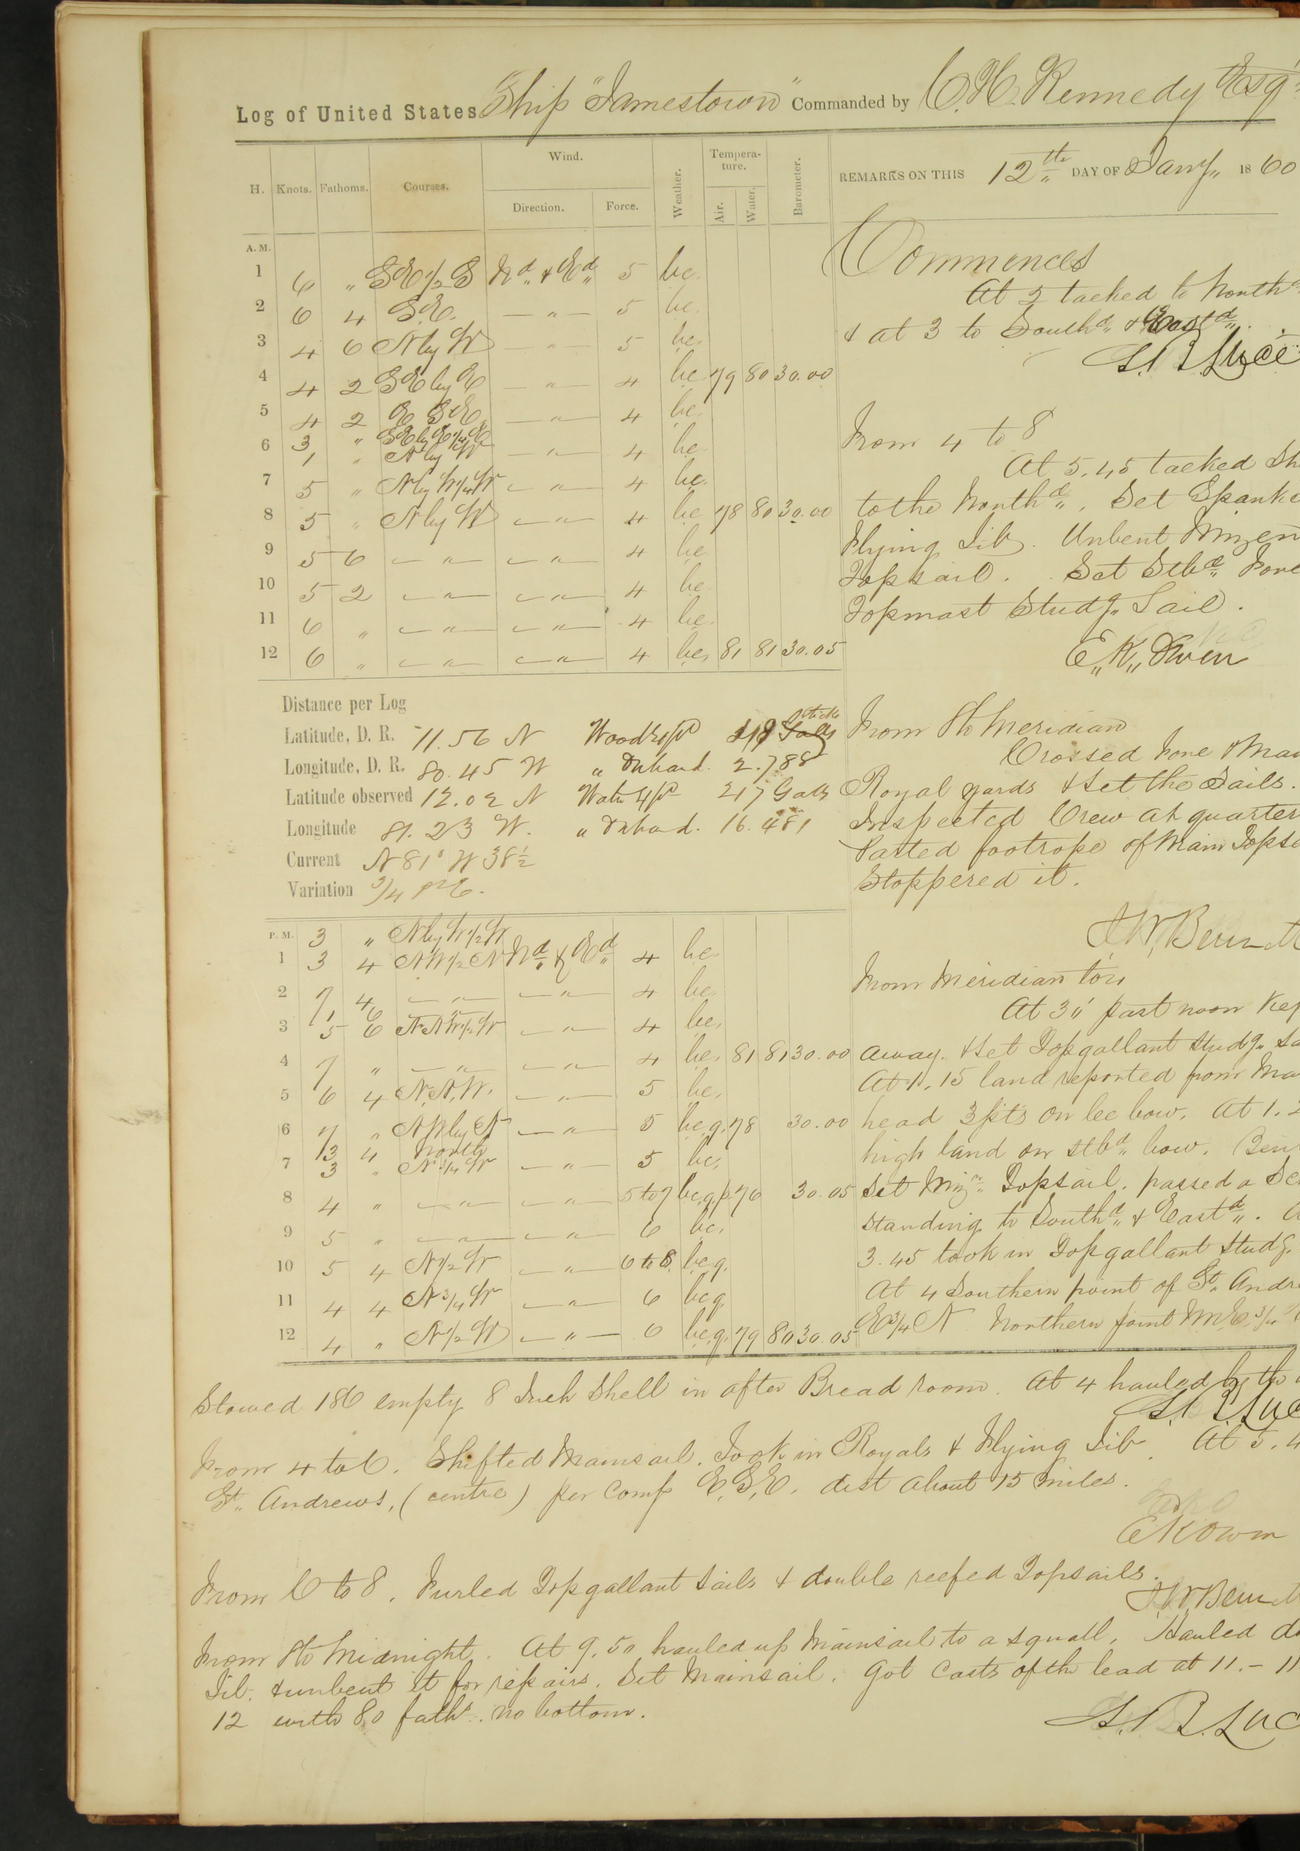 Log of United States Ship "Jamestown" Commanded by C. H. Kennedy Esqr
H. Knots. Fathoms. Courses. Wind. Direction. Force. Weather. Tempera-ture. Air. Water. Barometer.
REMARKS ON THIS 12th DAY OF Jany 1860
A. M.
1 6 " SE 1/2 S Nd & Ed 5 bc.
2 6 4 S.E. — " — 5 bc.
3 4 6 N by W — " — 5 bc.
4 4 2 SE by E — " — 4 bc 79 80 30.00
5 4 2 E. SE. — " — 4 bc.
6 3 " SE by E 1/4 E
1 " N by W — " — 4 bc.
7 5 " N by W 1/4 W — " — 4 bc.
8 5 " N by W — " — 4 bc 78 80 30.00
9 5 6 — " — — " — 4 bc
10 5 2 — " — — " — 4 bc.
11 6 " — " — — " — 4 bc.
12 6 " — " — — " — 4 bc. 81 81 30.05
Commences
At 2 tacked to North
& at 3 to Southd & Eastd.
S. B. Luce
From 4 to 8
At 5.45 tacked
to the Northd. Set
Flying Jib. Unbent Mizen
Topsail. Set Stbd Fore
Topmast Studg Sail.
E. K. Owen
Distance per Log
Latitude, D. R. 11.56 N
Longitude, D. R. 80.45 W
Latitude observed 12.02 N
Longitude 81.23 W.
Current N 81° W 38 1/2
Variation 3/4
Wood Exp 218 Sticks
" On hand. 2.788
Water Exp 217 Galls
" On hand. 16.481
From 8 to Meridian
Crossed Fore &
Royal yards & set the Sails.
Inspected Crew at quarters
Parted footrope of Main
Stoppered it.
P. M.
3 " N by W 1/2 W
1 3 4 NW 1/2 N Nd & Ed 4 bc
2 7 4 — " — — " — 4 bc.
1 6
3 5 6 NNW 1/2 W — " — 4 bc.
4 7 " — " — — " — 4 bc. 81 81 30.00
5 6 4 N.N.W. — " — 5 bc.
6 7 " N W by N — " — 5 bc.q. 78 30.00
3 4 North
7 3 " N 3/4 W — " — 5 bc.
8 4 " — " — — " — 5 to 7 bc.q.p. 76 30.05
9 5 " — " — — " — 6 bc.
10 5 4 N 1/2 W — " — 6 to 8 bc.q.
11 4 4 N 3/4 W — " — 6 bcq
12 4 " N 1/2 W — " — 6 bc.q. 79 80 30.05
From Meridian to 4
At 3' past noon
away. & set Topgallant Studg
At 1.15 land reported from
head 3 pts on lee bow. At 1.
high land on stbd bow.
Set Mizn Topsail. passed a
standing to Southd & Eastd.
3.45 took in Topgallant Studg.
At 4 Southern point of St.
E 3/4 N Northern point
Stowed 186 empty 8 Inch Shell in after Bread room. At 4 hauled by the
From 4 to 6. Shifted Mainsail. Took in Royals & Flying Jib. At 5.4
St. Andrews, (centre) per Comp E.S.E. dist about 15 miles.
E K Owen
From 6 to 8. Furled Topgallant Sails & double reefed Topsails.
From 8 to Midnight. At 9.50 hauled up Mainsail to a squall. Hauled
Jib. & unbent it for repairs. Set Mainsail. Got Casts of the lead at 11.— 11
12 with 80 faths. no bottom.